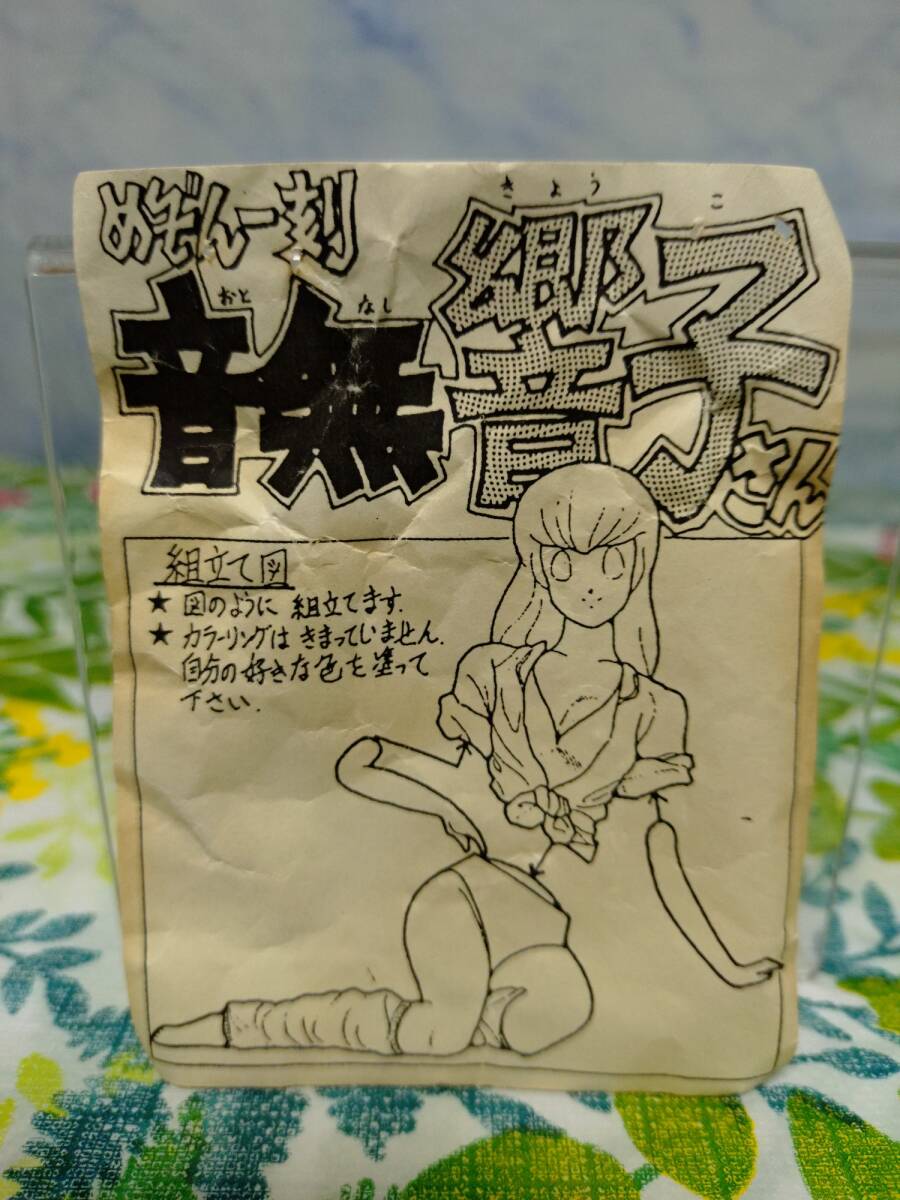 めぞん一刻
おとなし
音無
きょうこ
響子さん
組立て図
★ 図のように 組立てます.
★ カラーリングは きまっていません.
自分の好きな色を塗って
下さい.